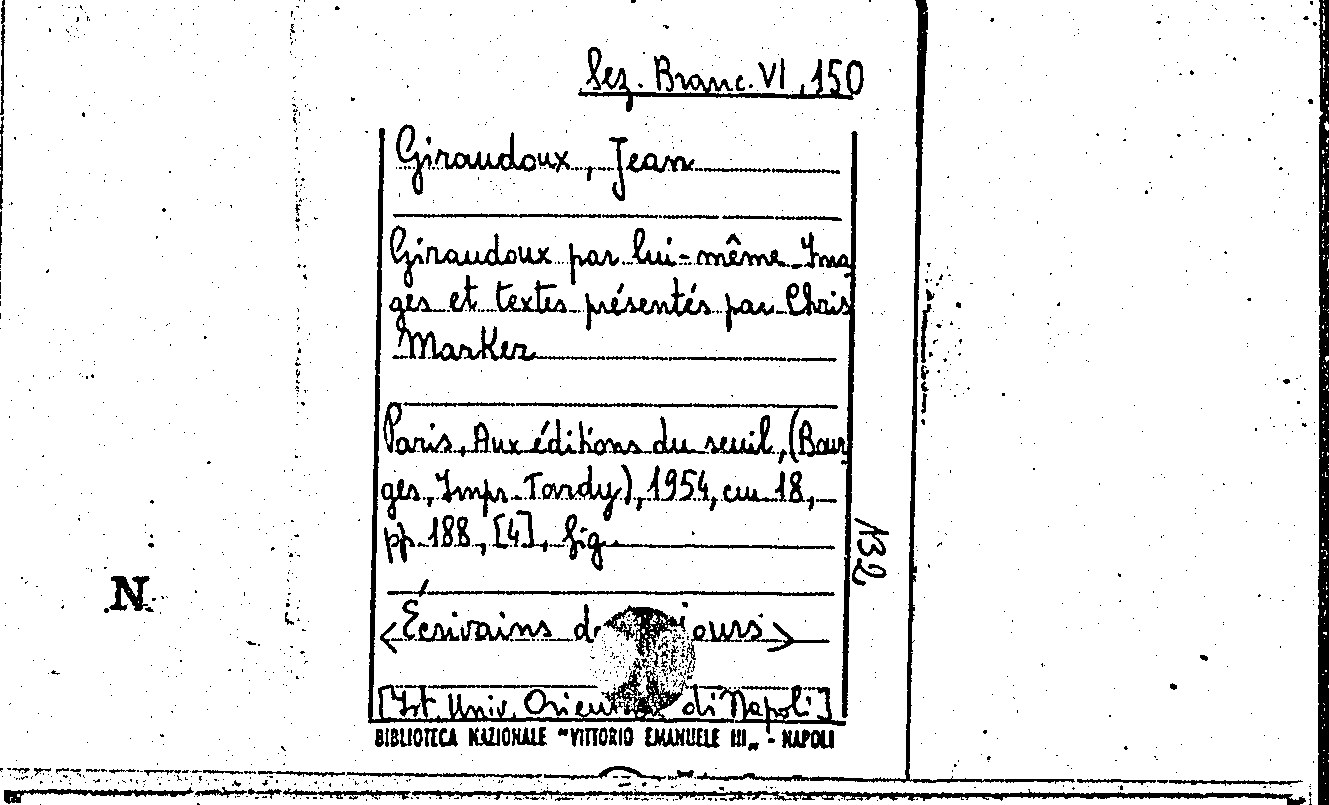 Sez. Branc. VI, 150
Giraudoux, Jean
Giraudoux par lui-même Ima
ges et textes présentés par Chris
Marker
Paris, Aux éditions du seuil, (Bour
ges, Imps. Tardy), 1954, cm 18,
pp. 188, [4], fig.
132
N
<Écrivains jours>
[Ist. Univ. di Napoli]
BIBLIOTECA NAZIONALE "VITTORIO EMANUELE III„ - NAPOLI